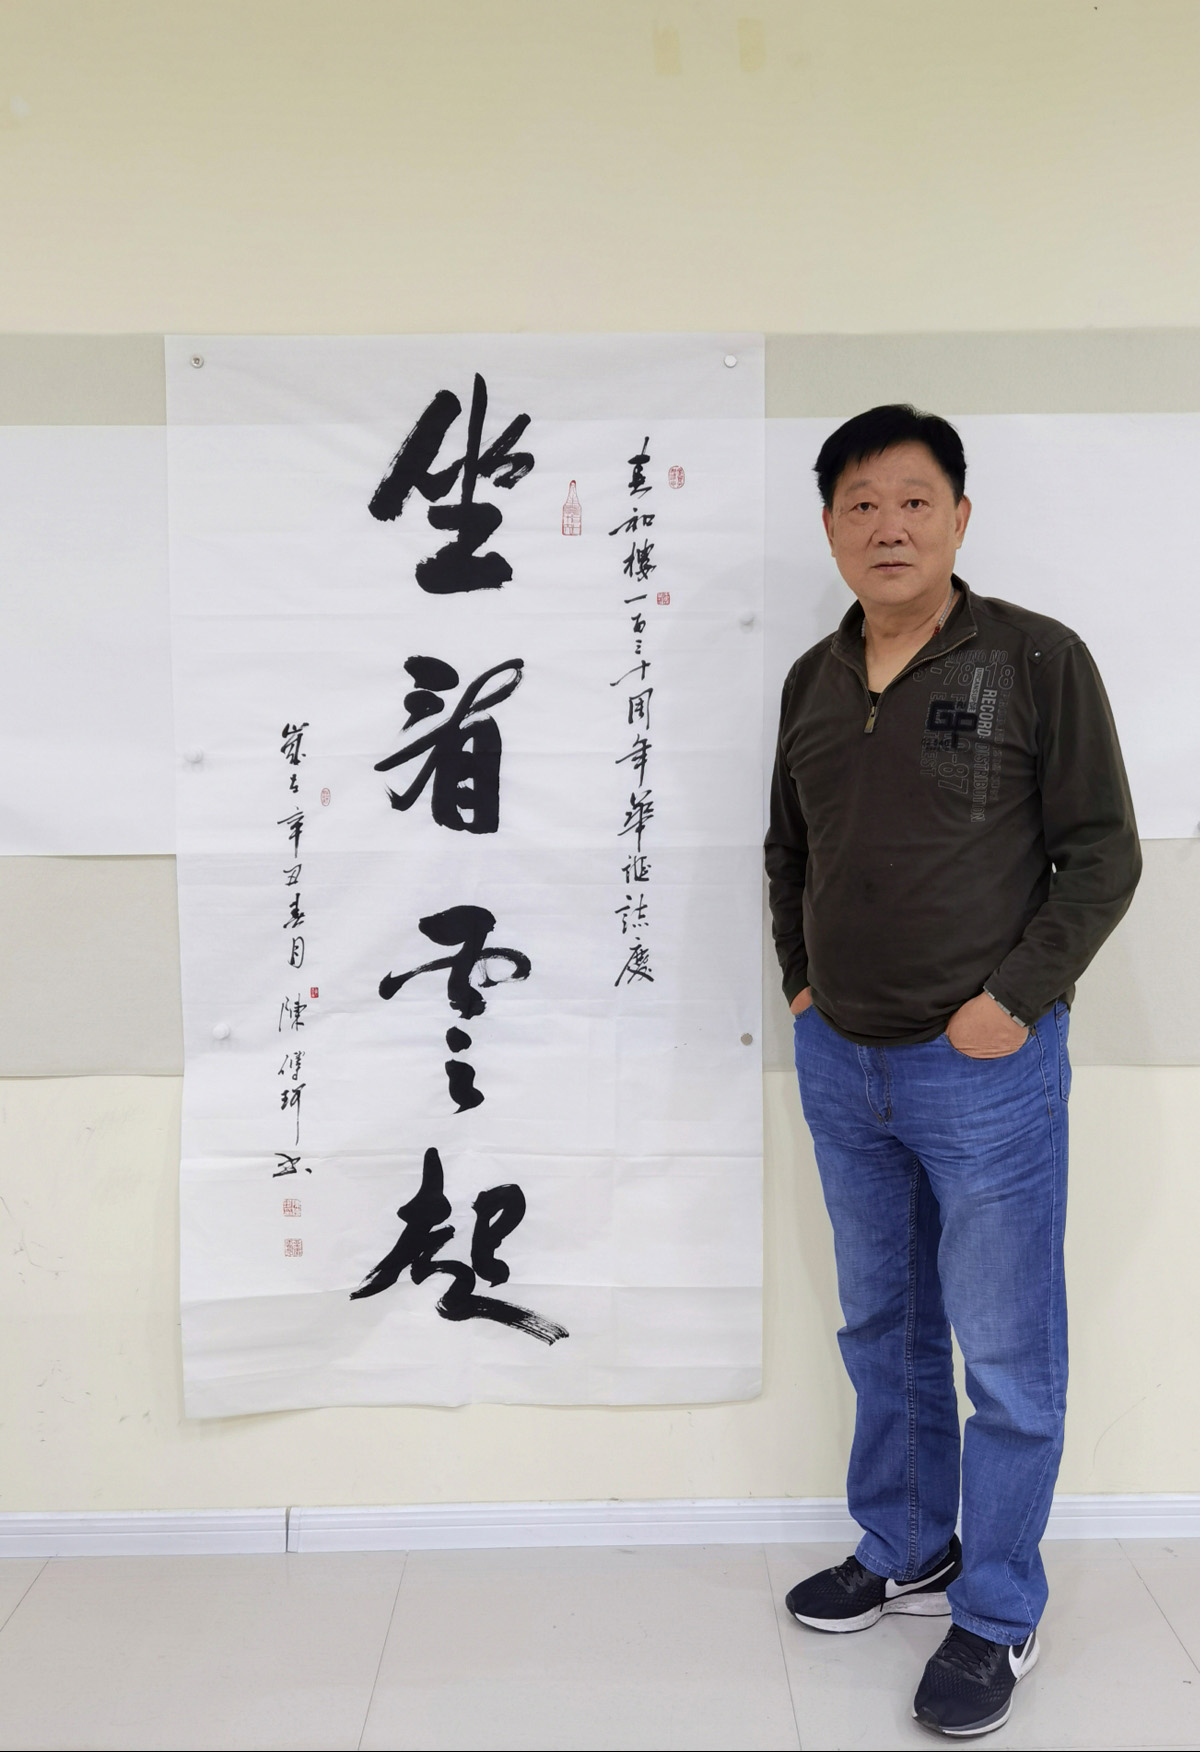 春和樓一百三十周年華誕誌慶
坐看雲起
歲在辛丑春月 陳 書
RECORD DISTRIBUTION
GP